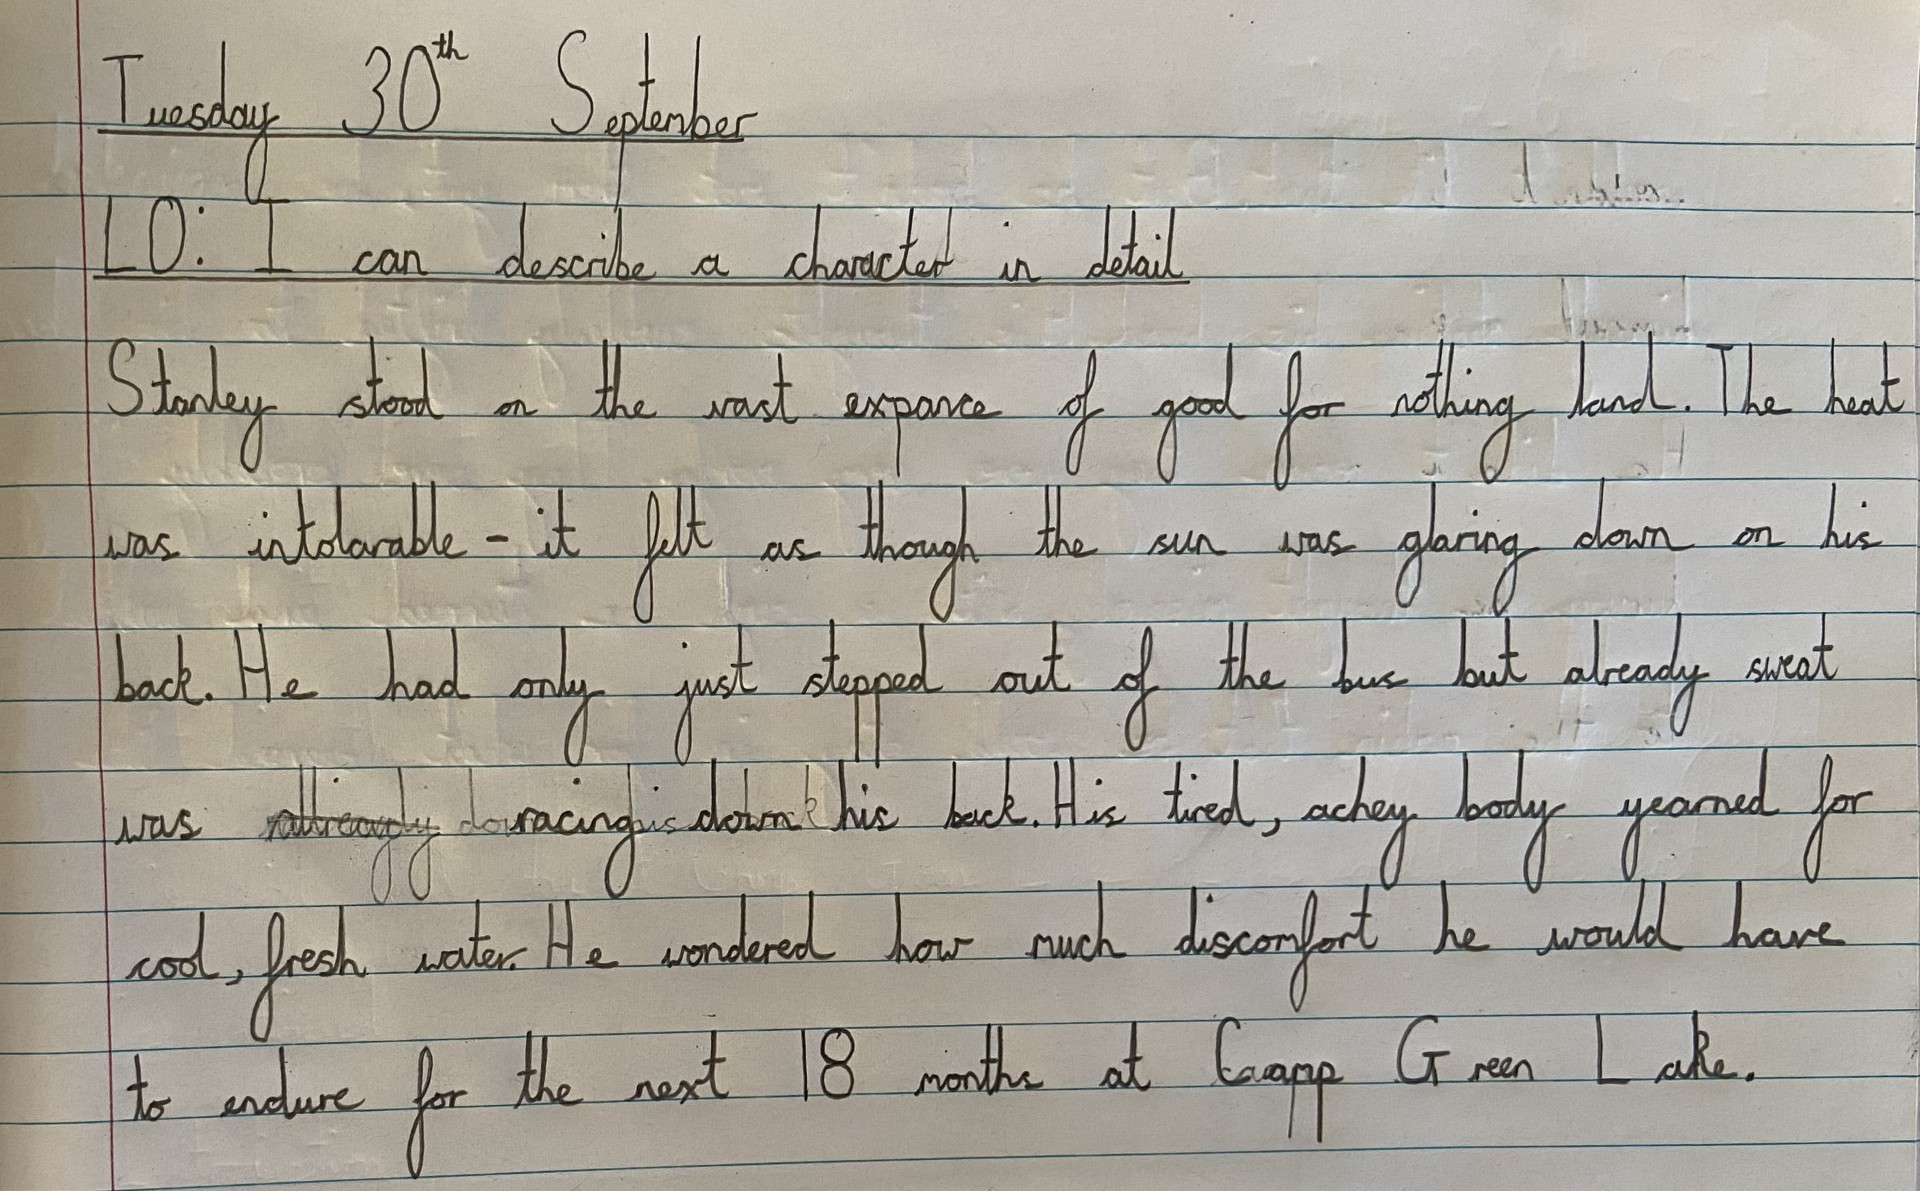 Tuesday 30th September
LO: I can describe a character in detail
Stanley stood on the vast expance of good for nothing land. The heat
was intolarable - it felt as though the sun was glaring down on his
back. He had only just stepped out of the bus but already sweat
was racing down his back. His tired, achey body yearned for
cool, fresh water. He wondered how much discomfort he would have
to endure for the next 18 months at Camp Green Lake.